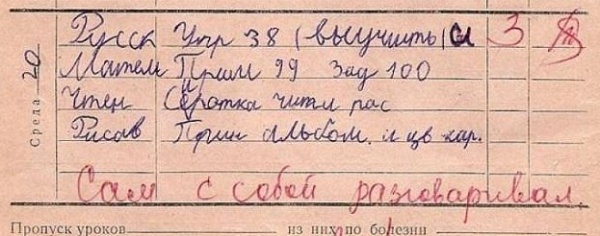 Среда 20
Русск Упр 38 (выучить) и 3
Матем Прим 99 Зад 100
Чтен Сиротка читл рас
Рисов Прин альбом. и цв кар.
Сам с собой разговаривал.
Пропуск уроков из них по болезни